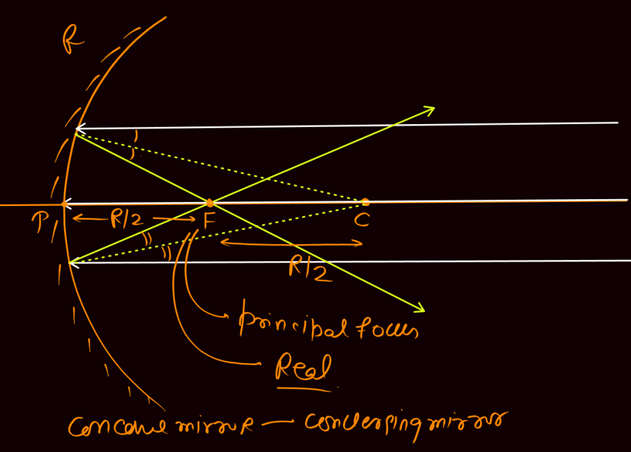 R
P R/2 F C
R/2
principal focus
Real
Concave mirror — converging mirror